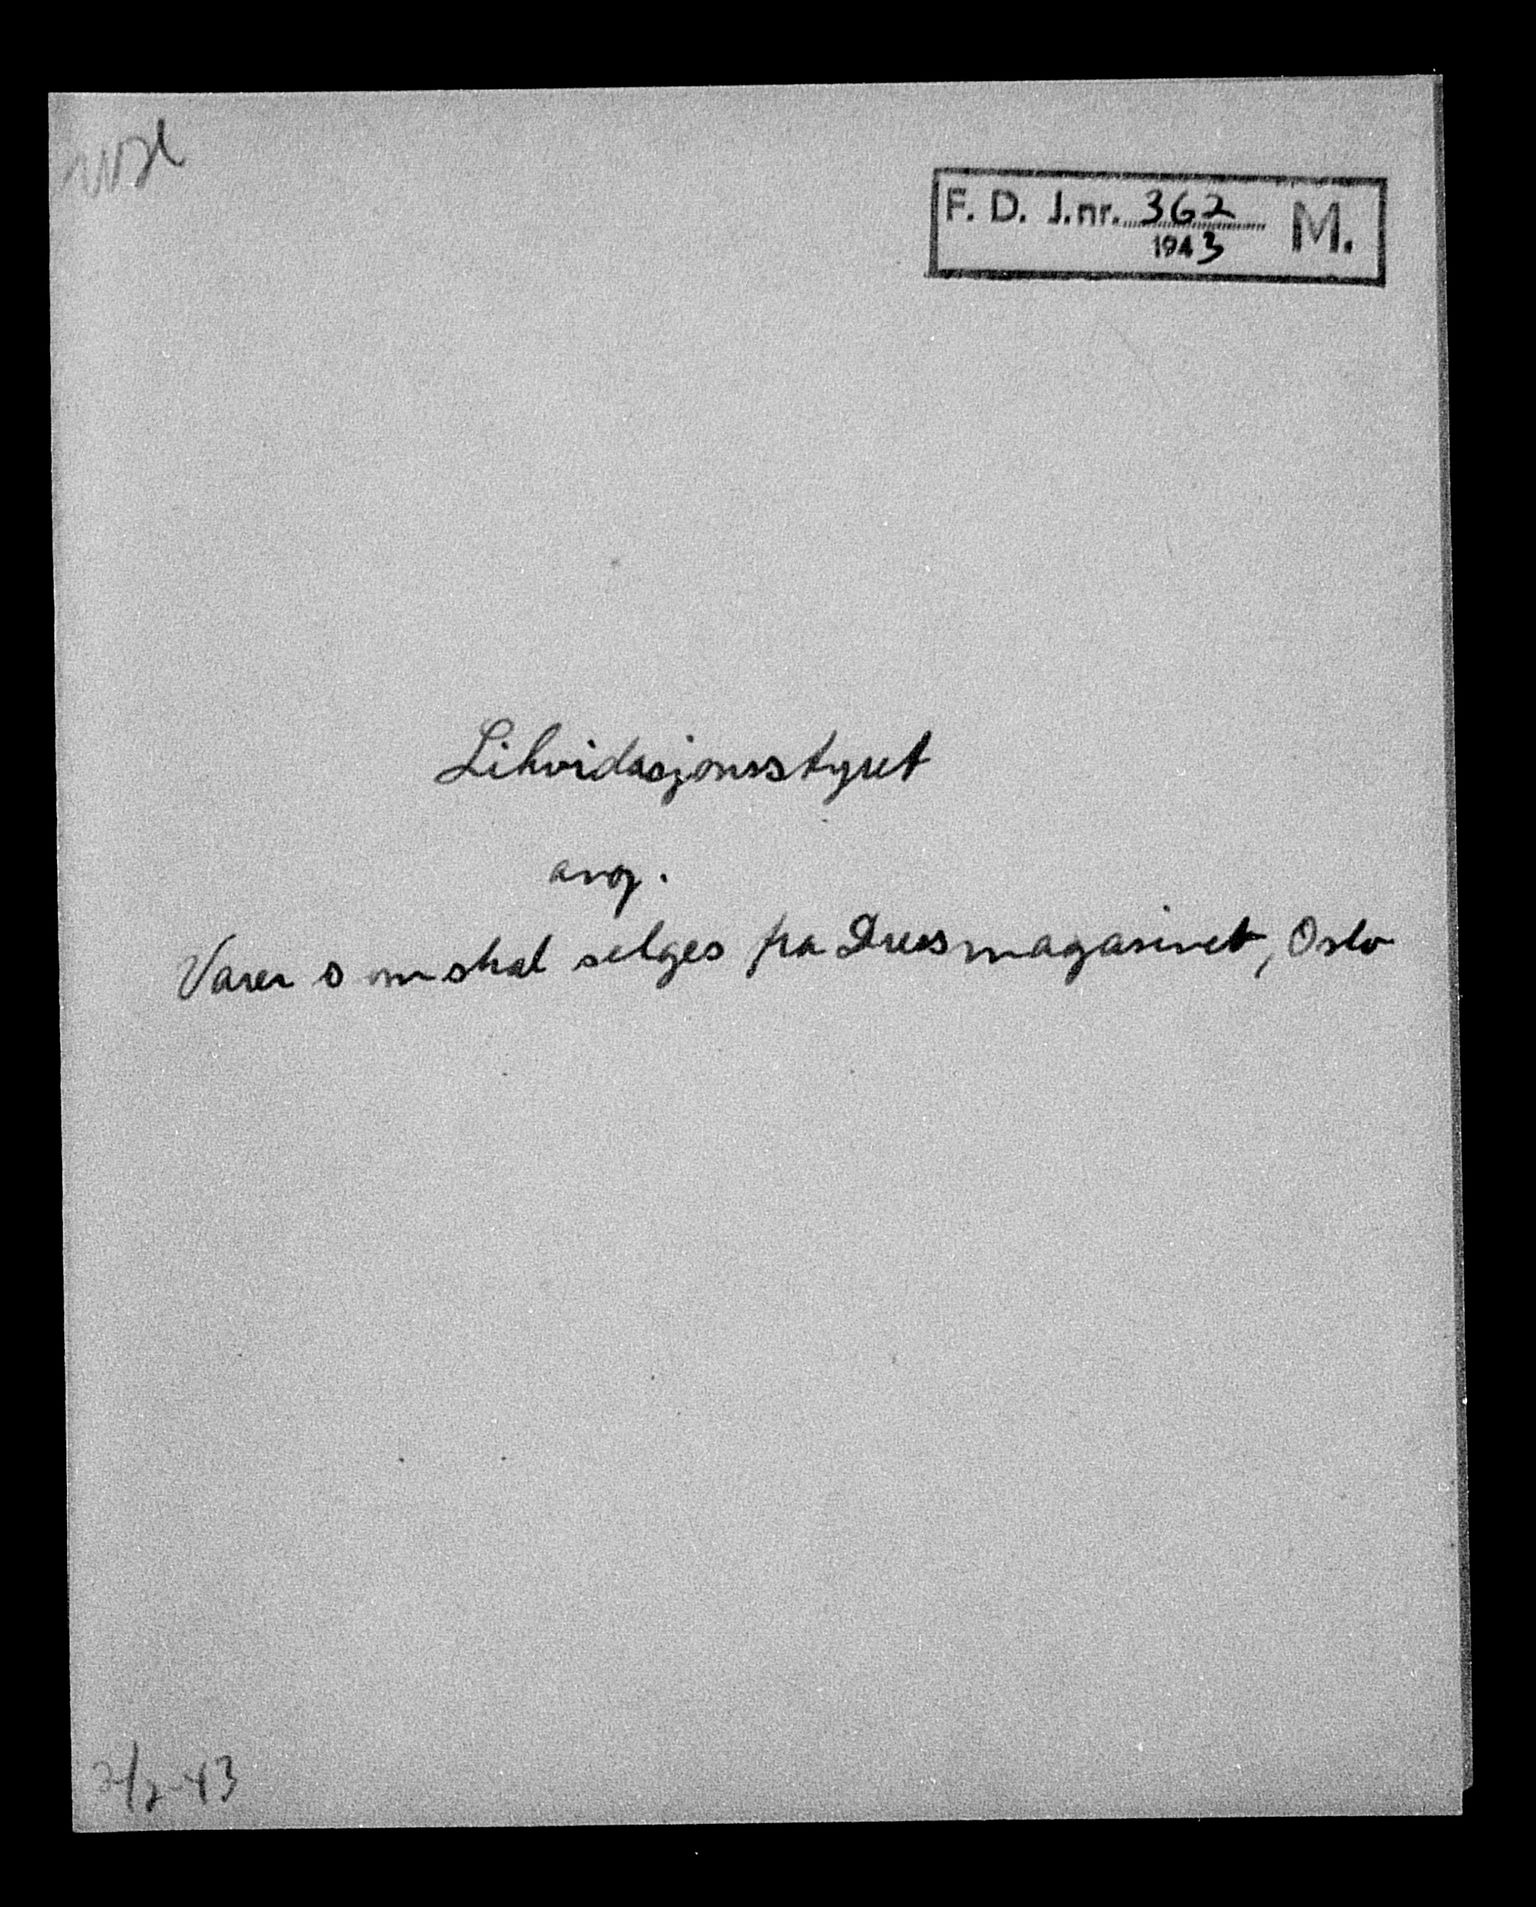 F. D. J.nr. 362 M.
1943
Likvidasjonsstyret
ang.
Varer som skal selges fra Dressmagasinet, Oslo
2/2-43